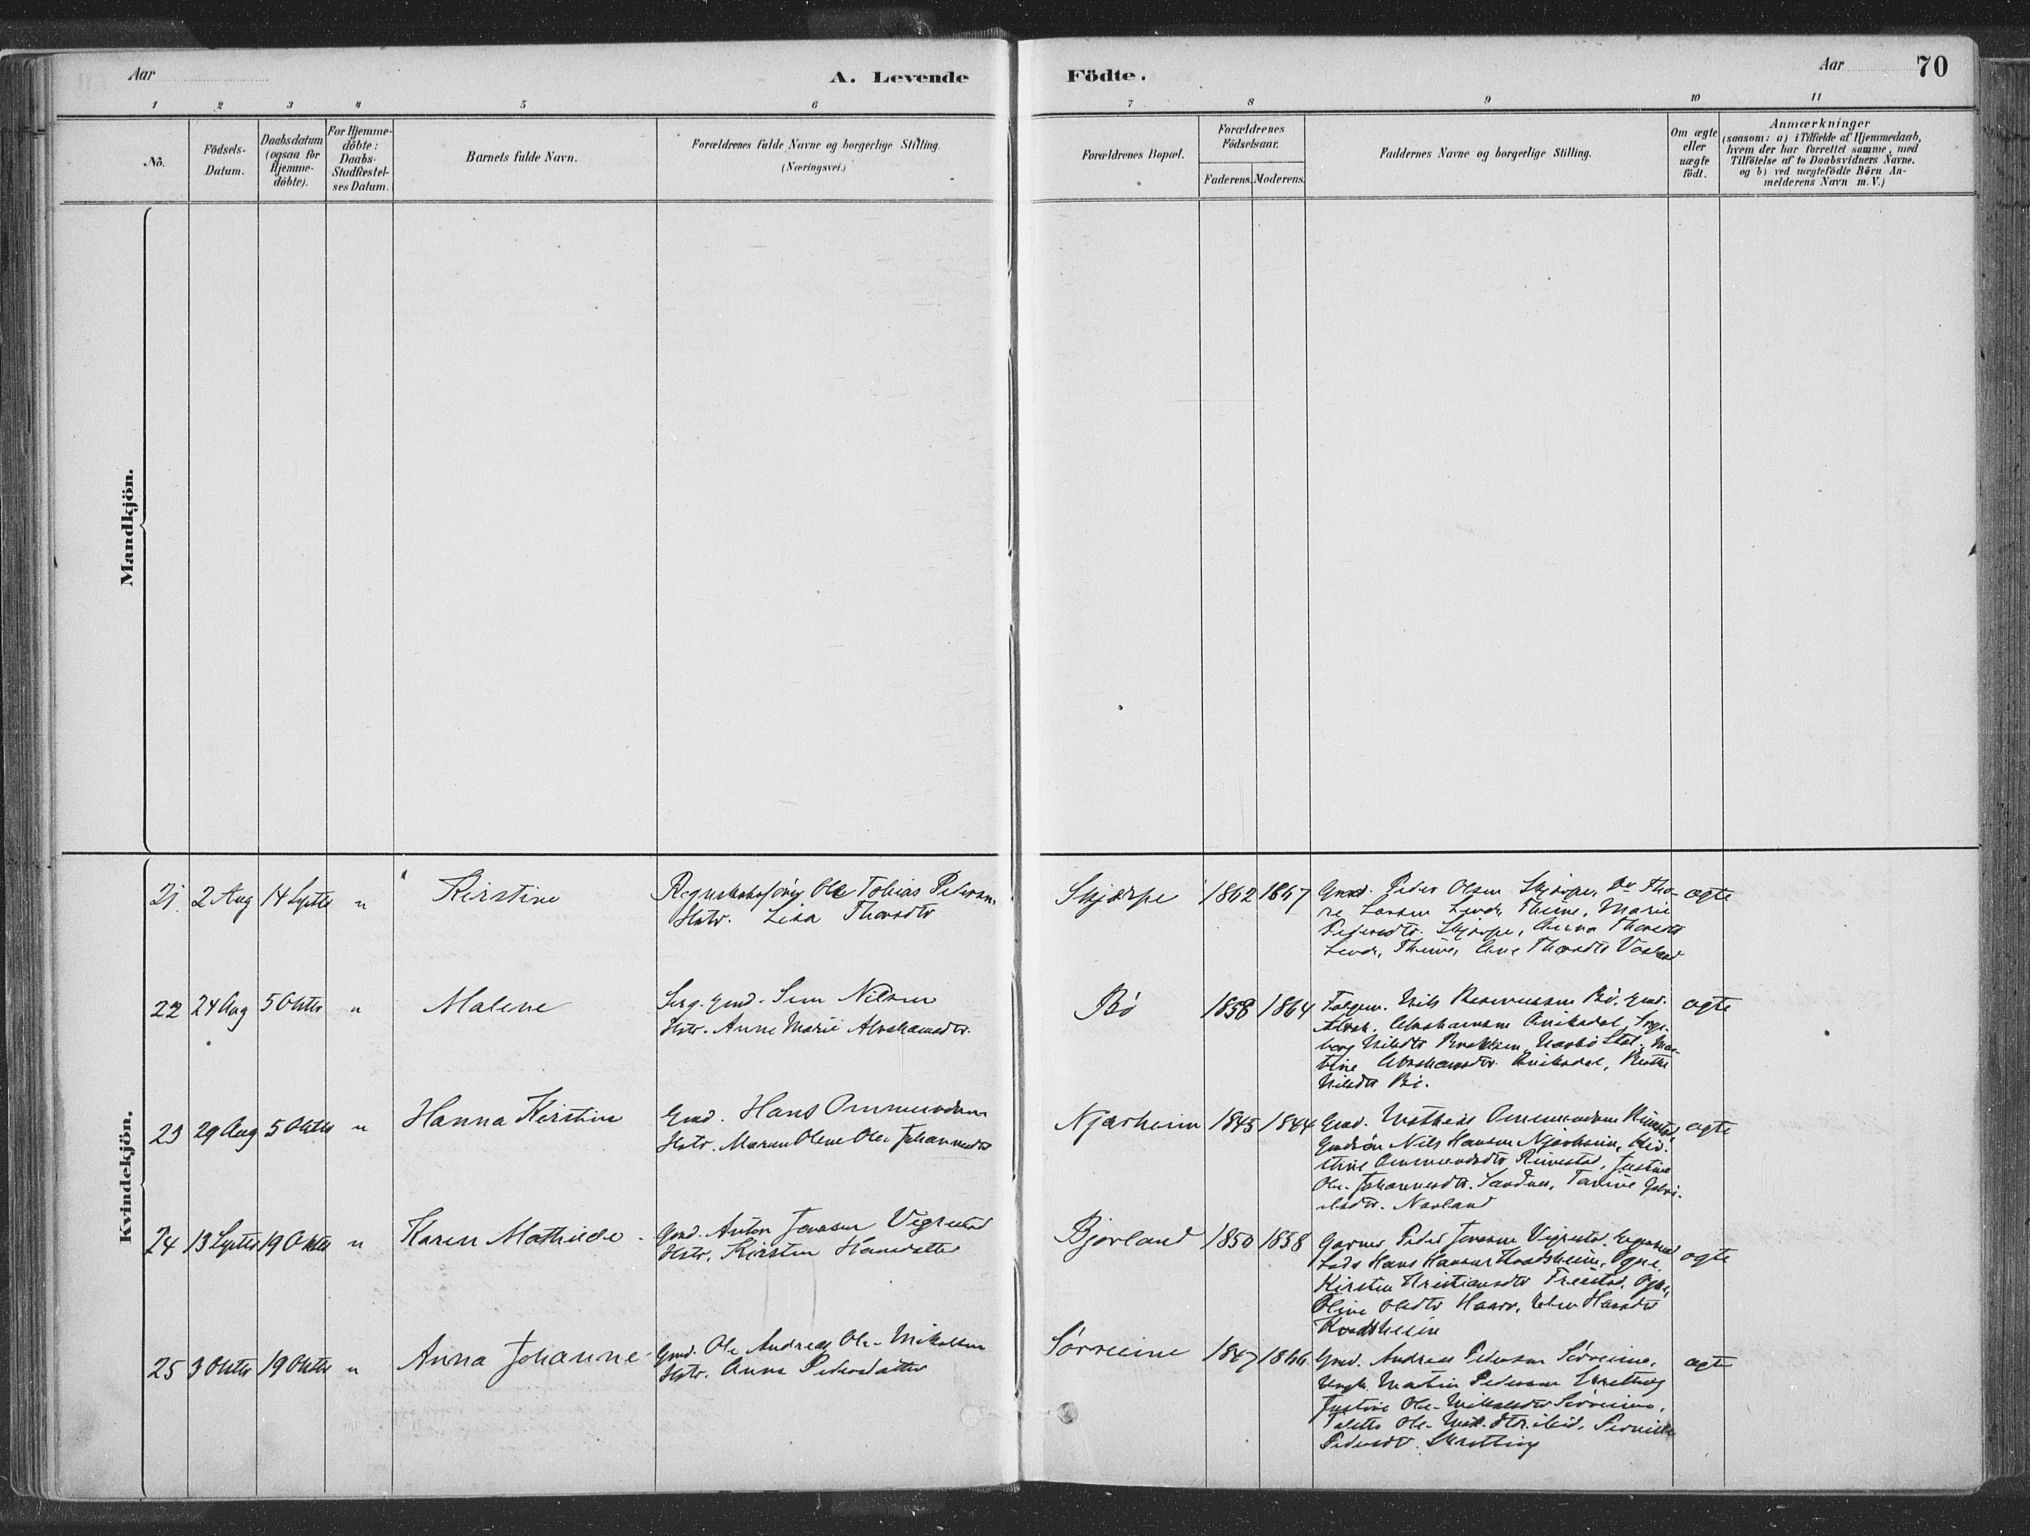 Aar
A. Levende
Födte.
Aar
70
1 2 3 4 5 6 7 8 9 10 11
No.
Födsels-
Datum.
Daabsdatum
(ogsaa for
Hjemme-
döbte).
For Hjemme-
döbte:
Daabs-
Stadfæstel-
ses Datum.
Barnets fulde Navn.
Forældrenes fulde Navne og borgerlige Stilling.
(Næringsvei.)
Forældrenes Bopæl.
Forældrenes
Födselsaar.
Faderens. Moderens.
Faddernes Navne og borgerlige Stilling.
Om ægte
eller
uægte
födt.
Anmærkninger
(saasom: a) i Tilfælde af Hjemmedaab,
hvem der har forrettet samme, med
Tilföielse af to Daabsvidners Navne.
og b) ved uægtefödte Börn An-
melderens Navn m. V.)
Mandkjön.
Kvindekjön.
21. 2 Aug 14 Septb " Kirstine
Ole Tobias Petersen
Hstr. Lisa Thoredtr
Skjærpe 1862 1867
Gmd. Peder Olsen Skjærpe, Do Tho-
re Larsen Thime, Marie
Pedersdtr. Skjærpe, Anna Thoredtr
Thime, Ane Thoredtr
ægte
22 24 Aug 5 Oktbr " Malene
Gmd. Sem Nilsen
Hstr. Anne Marie Abrahamsdtr.
Bö 1858 1864
Nils Rasmussen Bö, Gmd.
Abrah. Abrahamsen Aniksdal,
Abrahamsdtr. Aniksdal,
Nilsdtr Bö.
ægte
23 29 Aug 5 Oktbr " Hanna Kirstine
Gmd. Hans Ommundsen
Hstr. Maren Olene Ole Johannesdtr
Njærheim 1845 1844
Gmd. Mathias Ommundsen Rimestad,
Nils Hansen Njærheim,
Ommundsdtr Rimestad, Justine
Ole-Johannesdtr. Sandnes, Tarine
Norland
ægte
24 13 Septbr 19 Oktbr " Karen Mathilde
Gmd. Anton Jonassen Vigrestad
Hstr. Kirsten Hansdatter
Bjorland 1850 1858
Peder Jonassen Vigrestad,
Hans Hansen Kvadsheim, Ogne,
Kirsten Kristiansdtr Ogne,
Oline Olsdtr Haar, Hansdtr
Kvadsheim
ægte
25 3 Oktbr 19 Oktbr " Anna Johanne
Gmd. Ole Andreas Ole-Mikalsen
Hstr. Anna Pedersdatter
Sörreime 1847 1866
Gmd. Andreas Pedersen Sörreime,
Ungk. Martin Pedersen Skretting
Justine Ole-Mikalsdtr Sörreime,
Ole-Mik.dtr. ibid,
Pedersdtr. Skretting
ægte